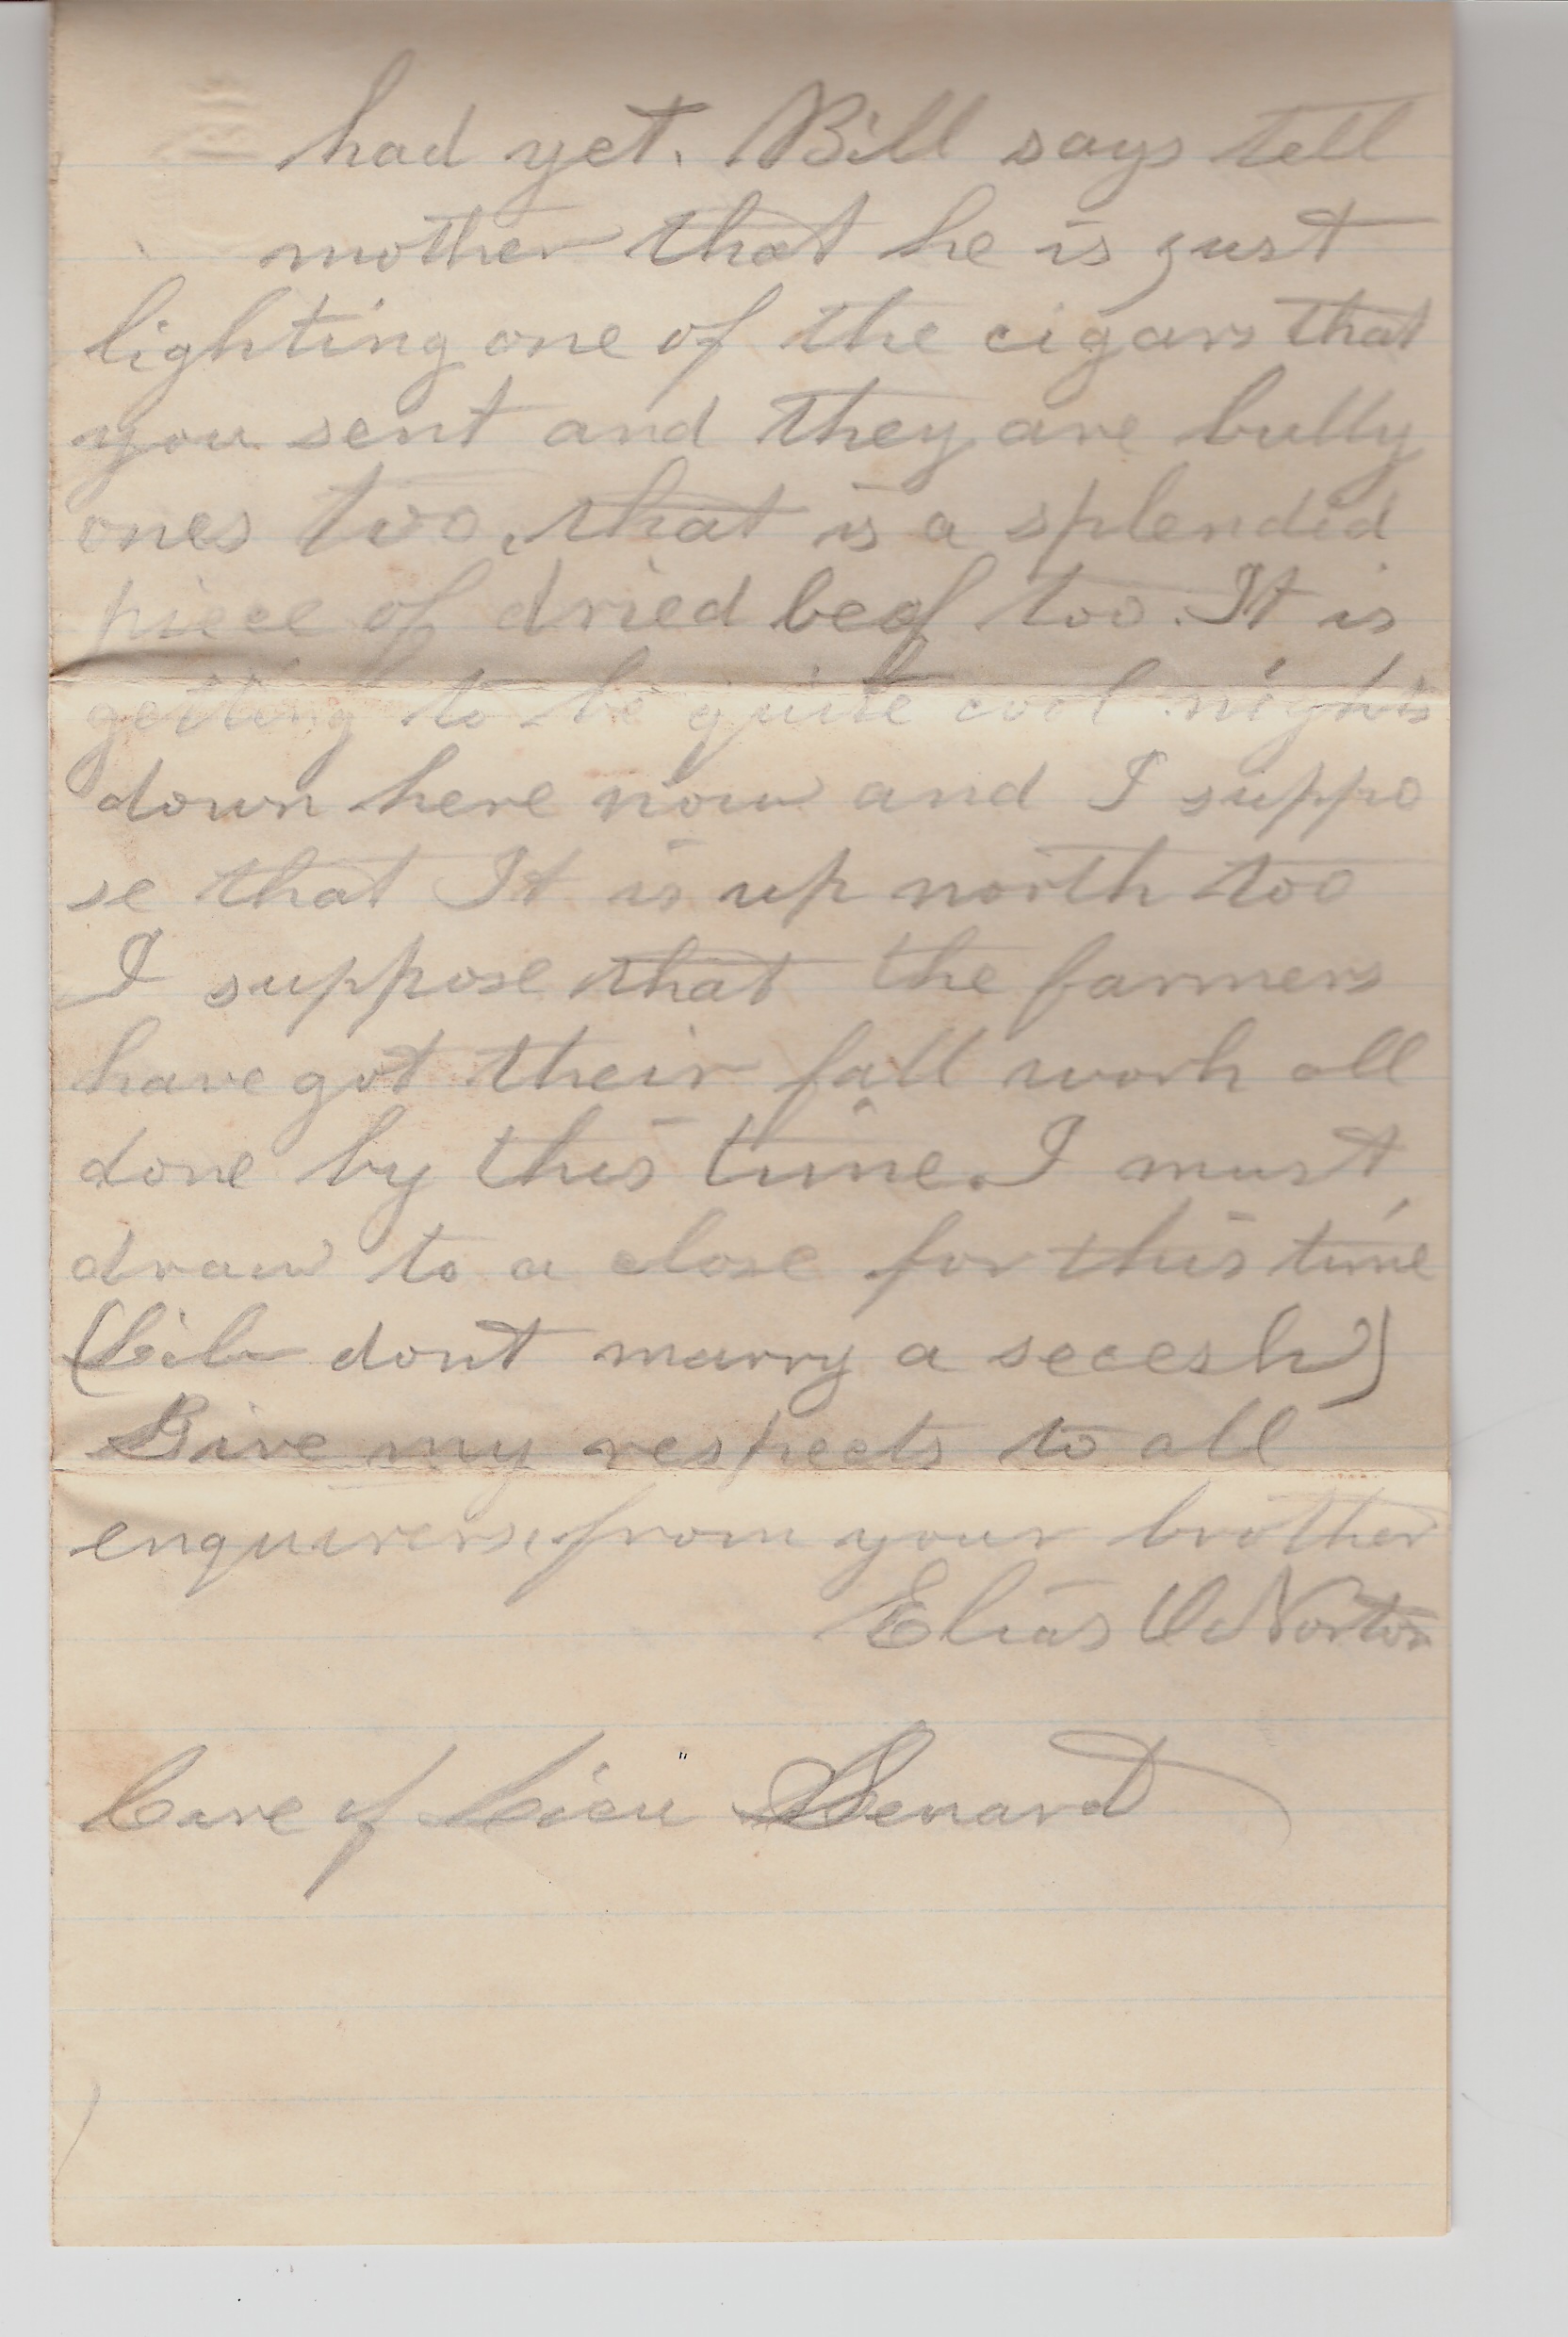 had yet. Bill says tell
mother that he is just
lighting one of the cigars that
you sent and they are bully
ones two, that is a splendid
piece of dried beof too. It is
getting to be quite cool nights
down here now and I suppo
se that It is up north too
I suppose that the farmers
have got their fall work all
done by this time. I must
draw to a close for this time
(Lib dont marry a secesh)
Give my respects to all
enquirers, from your brother
Elias Norton
Care of Lieu "